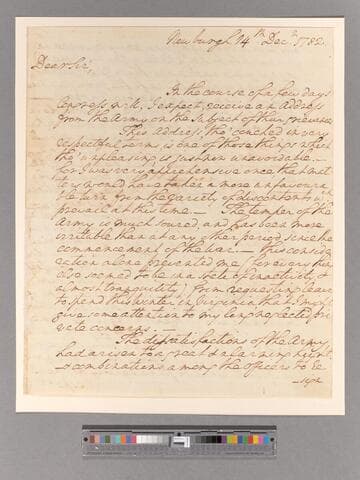 Newburgh 14th Decr 1782
Dear Sir,
In the course of a few days
Congress will, I expect, receive an Address
from the Army on the subject of their grievances.
This Address, tho' couched in very
respectful terms is one of those things which
tho' unpleasing is just now unavoidable. —
for I was very apprehensive once that mat-
ters would have taken a more unfavoura-
ble turn from the variety of discontents w
prevail at this time. — The temper of the
Army is much soured, and has been more
irritable than at any other period since the
commencement of the War. — This consid-
eration alone prevented me, (for every thing
else seemed to be in a state of inactivity, &
almost tranquility) from requesting leave
to spend this winter in Virginia that I might
give some attention to my long neglected pri-
vate concerns. —
The dissatisfactions of the Army
had arisen to a great & alarming height
& combinations among the Officers to re-